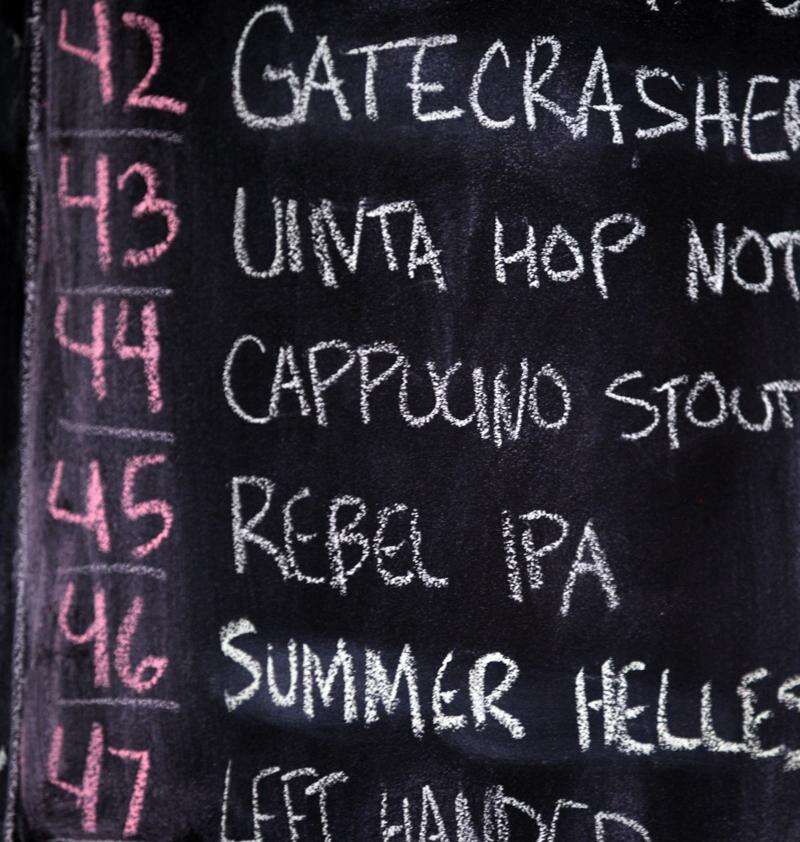 42 GATECRASHER
43 UINTA HOP NOT
44 CAPPUCINO STOUT
45 REBEL IPA
46 SUMMER HELLES
47 LEFT HANDED